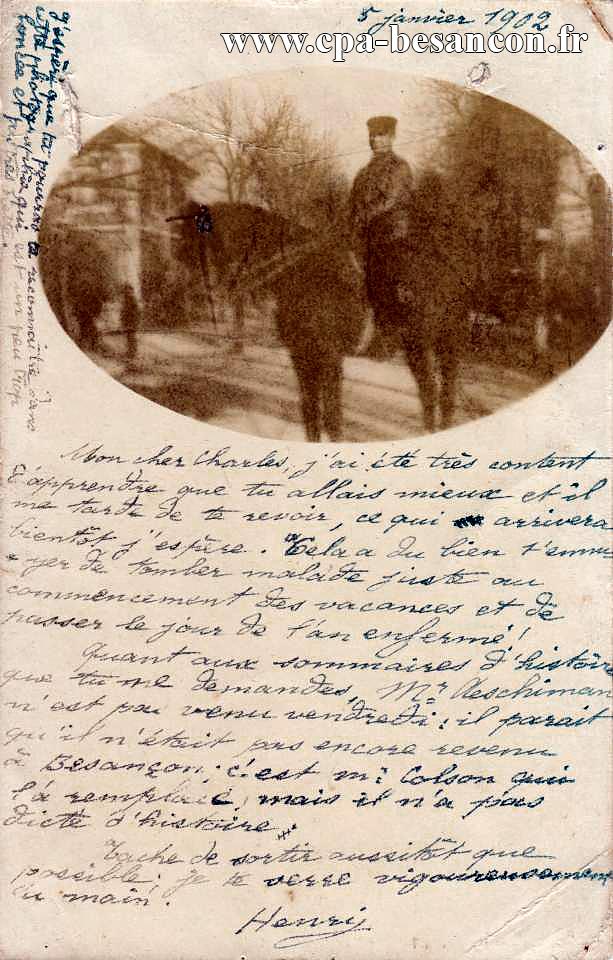 5 janvier 1902
www.cpa-besancon.fr
j'espère que tu pourras la reconnaître dans
cette photographie qui est un peu trop
foncée et
Mon cher Charles, j'ai été très content
d'apprendre que tu allais mieux et il
me tarde de te revoir, ce qui arrivera
bientôt j'espère. Cela a dû bien t'ennu-
yer de tomber malade juste au
commencement des vacances et de
passer le jour de l'an enfermé!
Quant aux sommaires d'histoire
que tu me demandes, Mr. Aeschiman
n'est pas venu vendredi; il parait
qu'il n'était pas encore revenu
à Besançon; c'est mr Colson qui
l'a remplacé, mais il n'a pas
dicté d'histoire.
Tache de sortir aussitôt que
possible. Je te serre vigoureusement
la main.
Henry